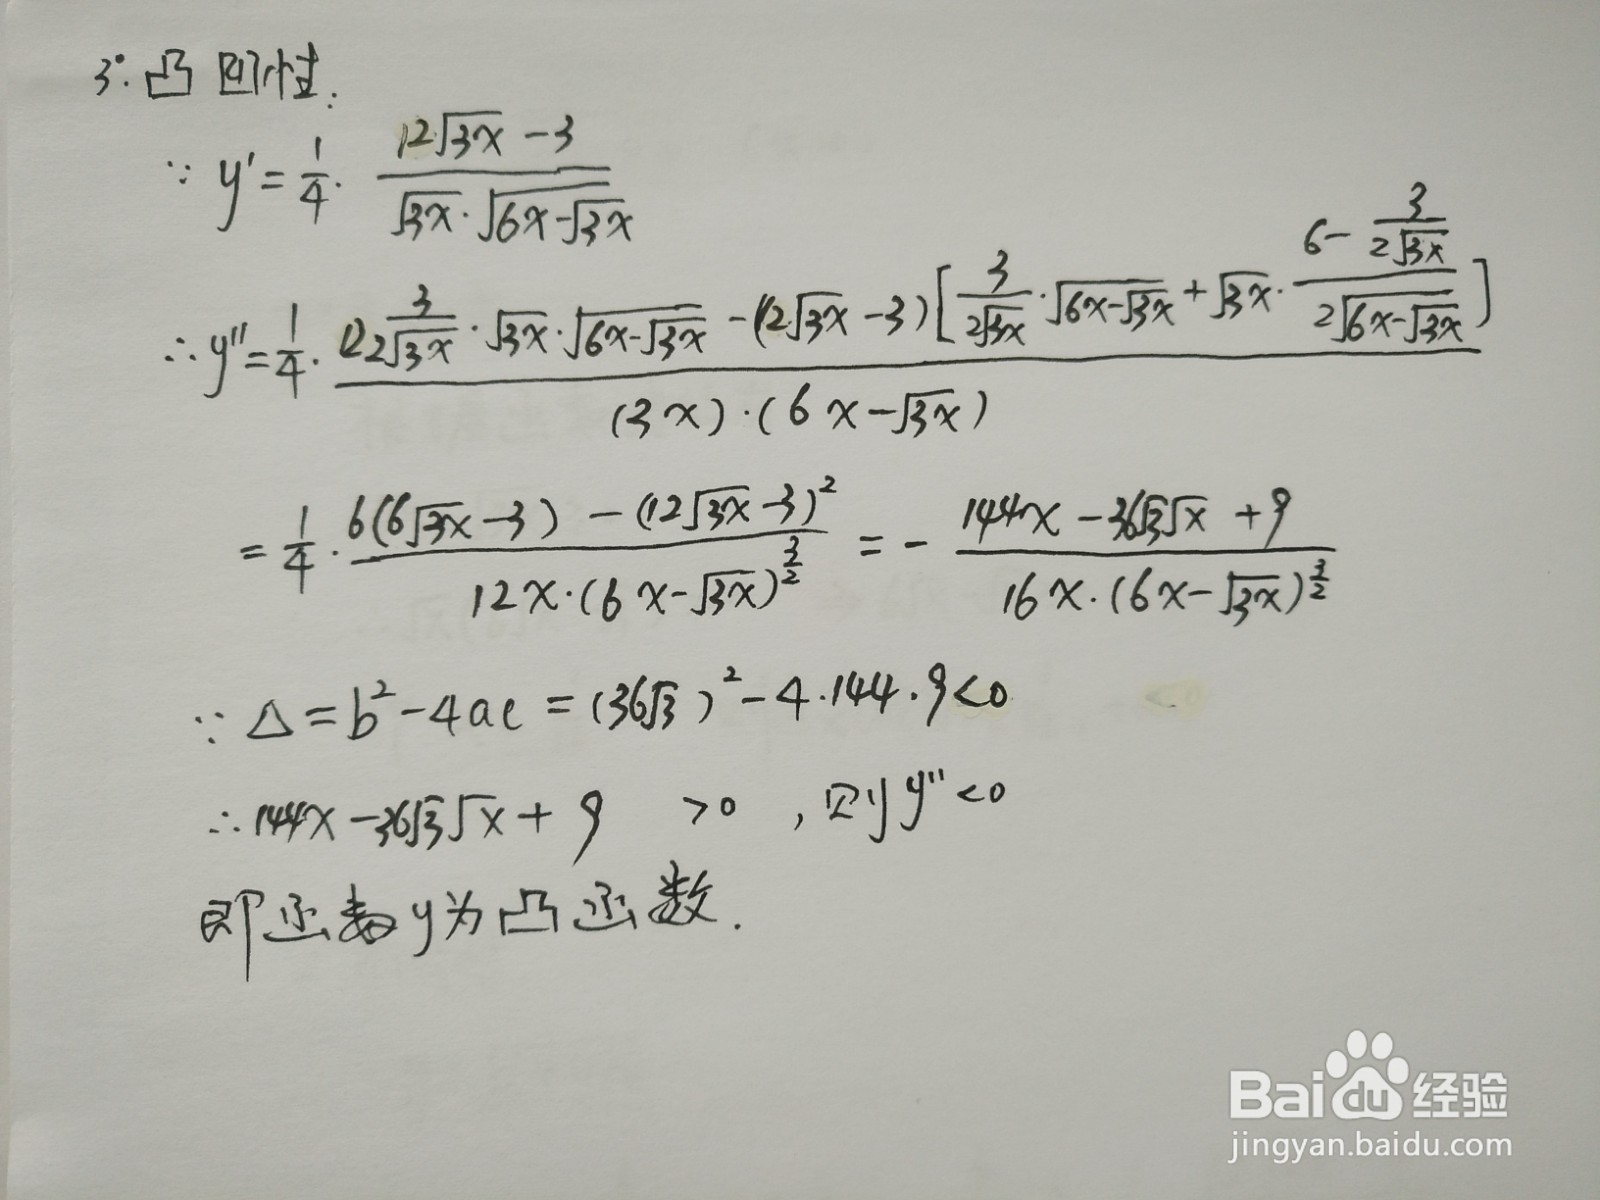 3°.凸凹性:
∵ y' = 1/4 · (12√(3x) - 3) / (√(3x) · √(6x-√(3x)))
∴ y'' = 1/4 · (12 3/(2√(3x)) · √(3x) · √(6x-√(3x)) - (12√(3x) - 3)[3/(2√(3x)) · √(6x-√(3x)) + √(3x) · (6 - 3/(2√(3x))) / (2√(6x-√(3x)))]) / ((3x)·(6x-√(3x)))
= 1/4 · (6(6√(3x) - 3) - (12√(3x) - 3)²) / (12x·(6x-√(3x))^(3/2)) = - (144x - 36√3√x + 9) / (16x·(6x-√(3x))^(3/2))
∵ △ = b² - 4ac = (36√3)² - 4·144·9<0
∴ 144x - 36√3√x + 9 >0 , 则 y''<0
即函数y为凸函数.
Baidu经验
jingyan.baidu.com